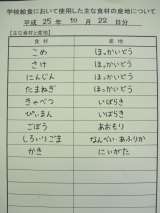 学校給食において使用した主な食材の産地について
平成 25年 10月 22日分
【主な食材と産地】
食材 産地
こめ ほっかいどう
さけ ほっかいどう
にんじん ほっかいどう
たまねぎ ほっかいどう
きゃべつ いばらき
ぴーまん いばらき
ごぼう あおもり
しろいりごま なんべい・あふりか
かき にいがた